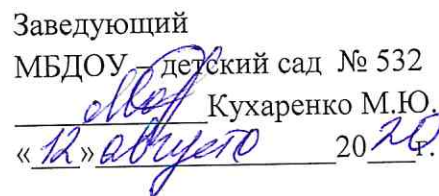 Заведующий
МБДОУ – детский сад № 532
Кухаренко М.Ю.
«12» августа 2020г.